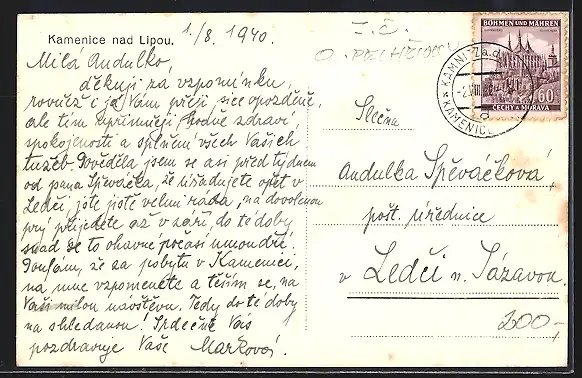 Kamenice nad Lipou,
1./8. 1940.
Milá Andulko,
děkuji za vzpomínku,
rovněž i já Vám přeji sice opožděně,
ale tím upřímněji hodně zdraví
spokojenosti a splnění všech Vašich
tužeb. Dověděla jsem se asi před týdnem
od pana Spěváčka, že úřadujete opět v
Ledči, jste jistě velmi ráda, na dovolenou
prý přijedete až v září, do té doby
snad se to ohavné počasí umoudří.
Doufám, že za pobytu v Kamenici,
na mne vzpomenete a těším se, na
Vaši milou návštěvu. Tedy do té doby
na shledanou! Srdečně Vás
pozdravuje Vaše Marková.
BÖHMEN UND MÄHREN
60
ČECHY A MORAVA
KAMENICE
Slečna
Andulka Spěváčková
pošt. úřednice
v Ledči n. Sázavou.
200,-